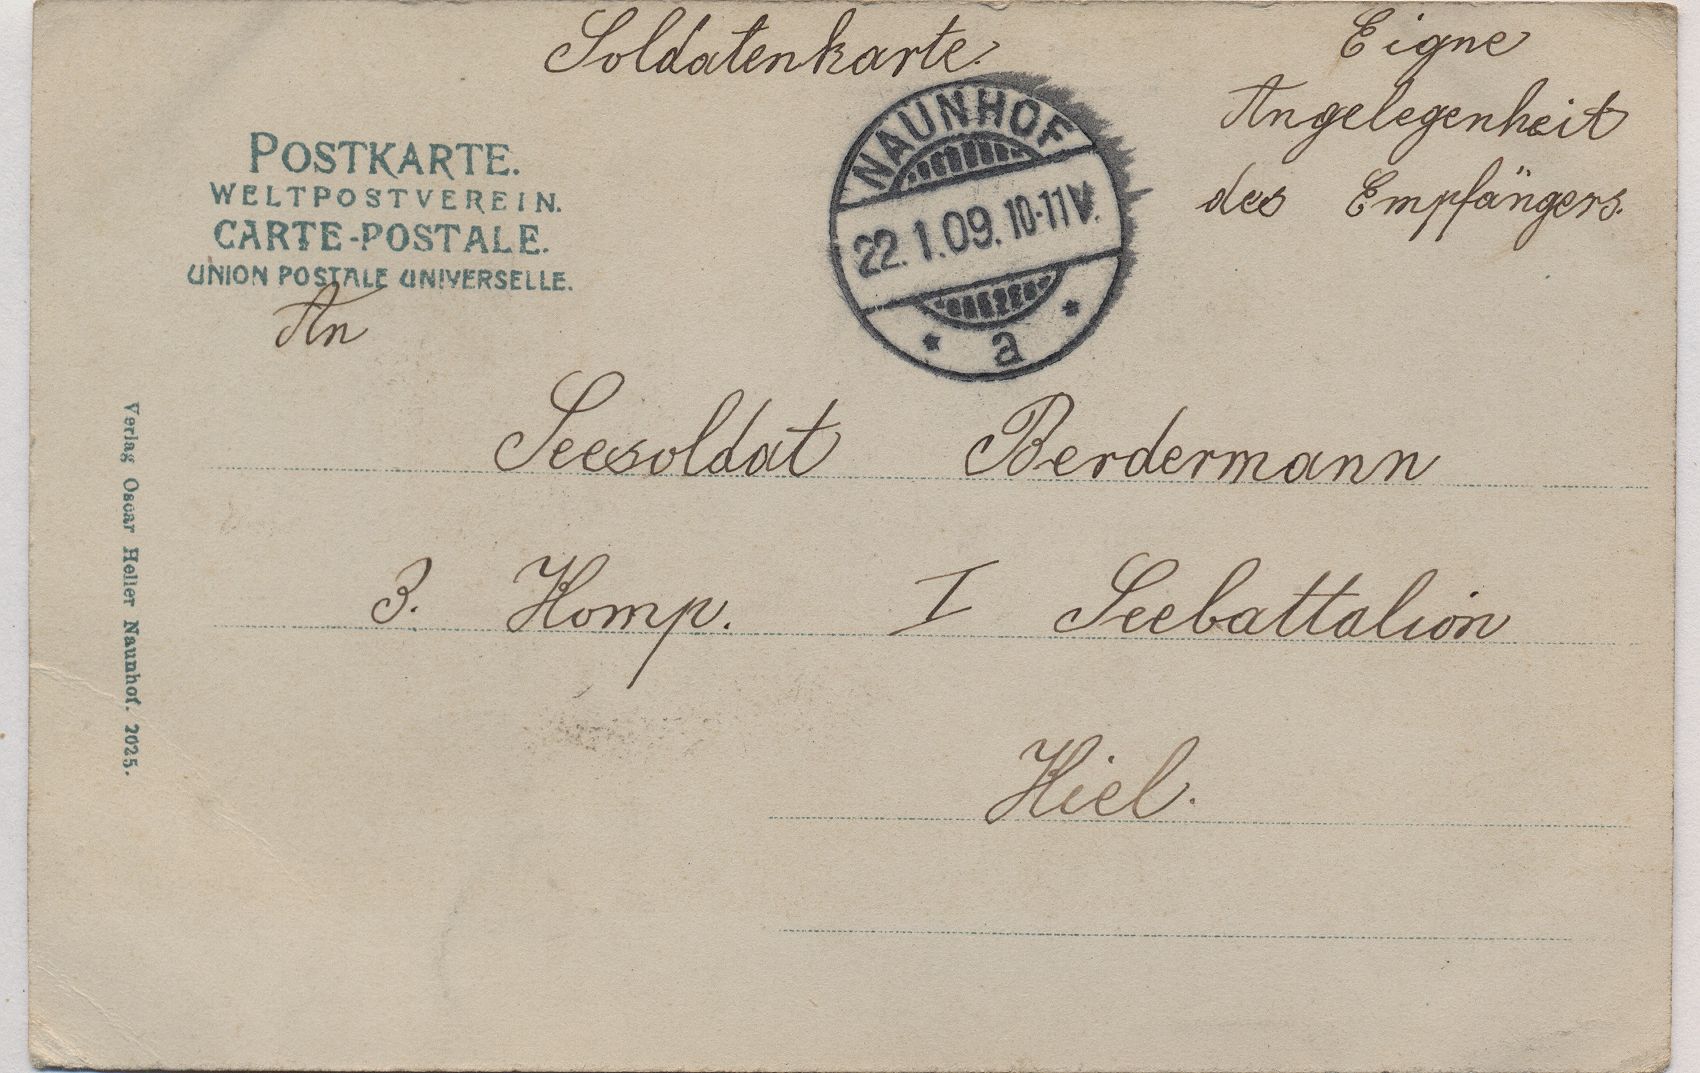 Soldatenkarte.
Eigne
Angelegenheit
des Empfängers.
POSTKARTE.
WELTPOSTVEREIN.
CARTE-POSTALE.
UNION POSTALE UNIVERSELLE.
NAUNHOF
22.1.09.10-11V.
* a *
An
Seesoldat Berdermann
3. Komp. I Seebattalion
Kiel.
Verlag Oscar Heller Naunhof. 2025.